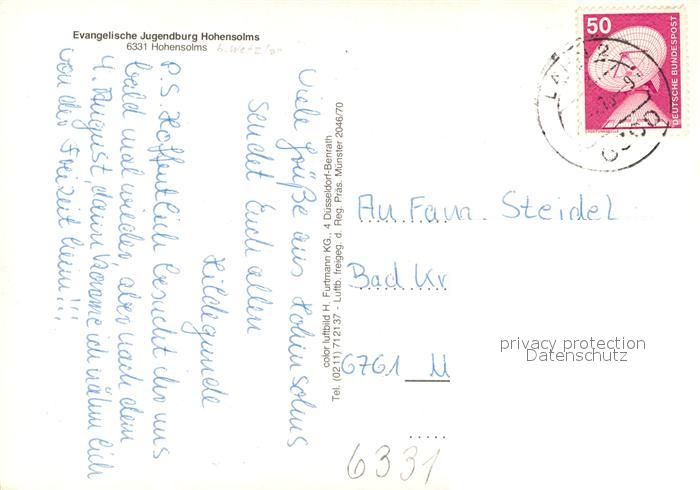 Evangelische Jugendburg Hohensolms
6331 Hohensolms b. Wetzlar
Viele Grüße aus Hohensolms
sendet Euch allen
Hildegunde
P.S. Hoffentlich besucht ihr uns
bald mal wieder, aber nach dem
4. August, dann komme ich nämlich
von der Freizeit heim!!!
color luftbild H. Furtmann KG., 4 Düsseldorf-Benrath
Tel. (0211) 712137 - Luftb. freigeg. d. Reg. Präs. Münster 2046/70
50
DEUTSCHE BUNDESPOST
An Fam. Steidel
Bad Kr
6761 M
privacy protection
Datenschutz
6331